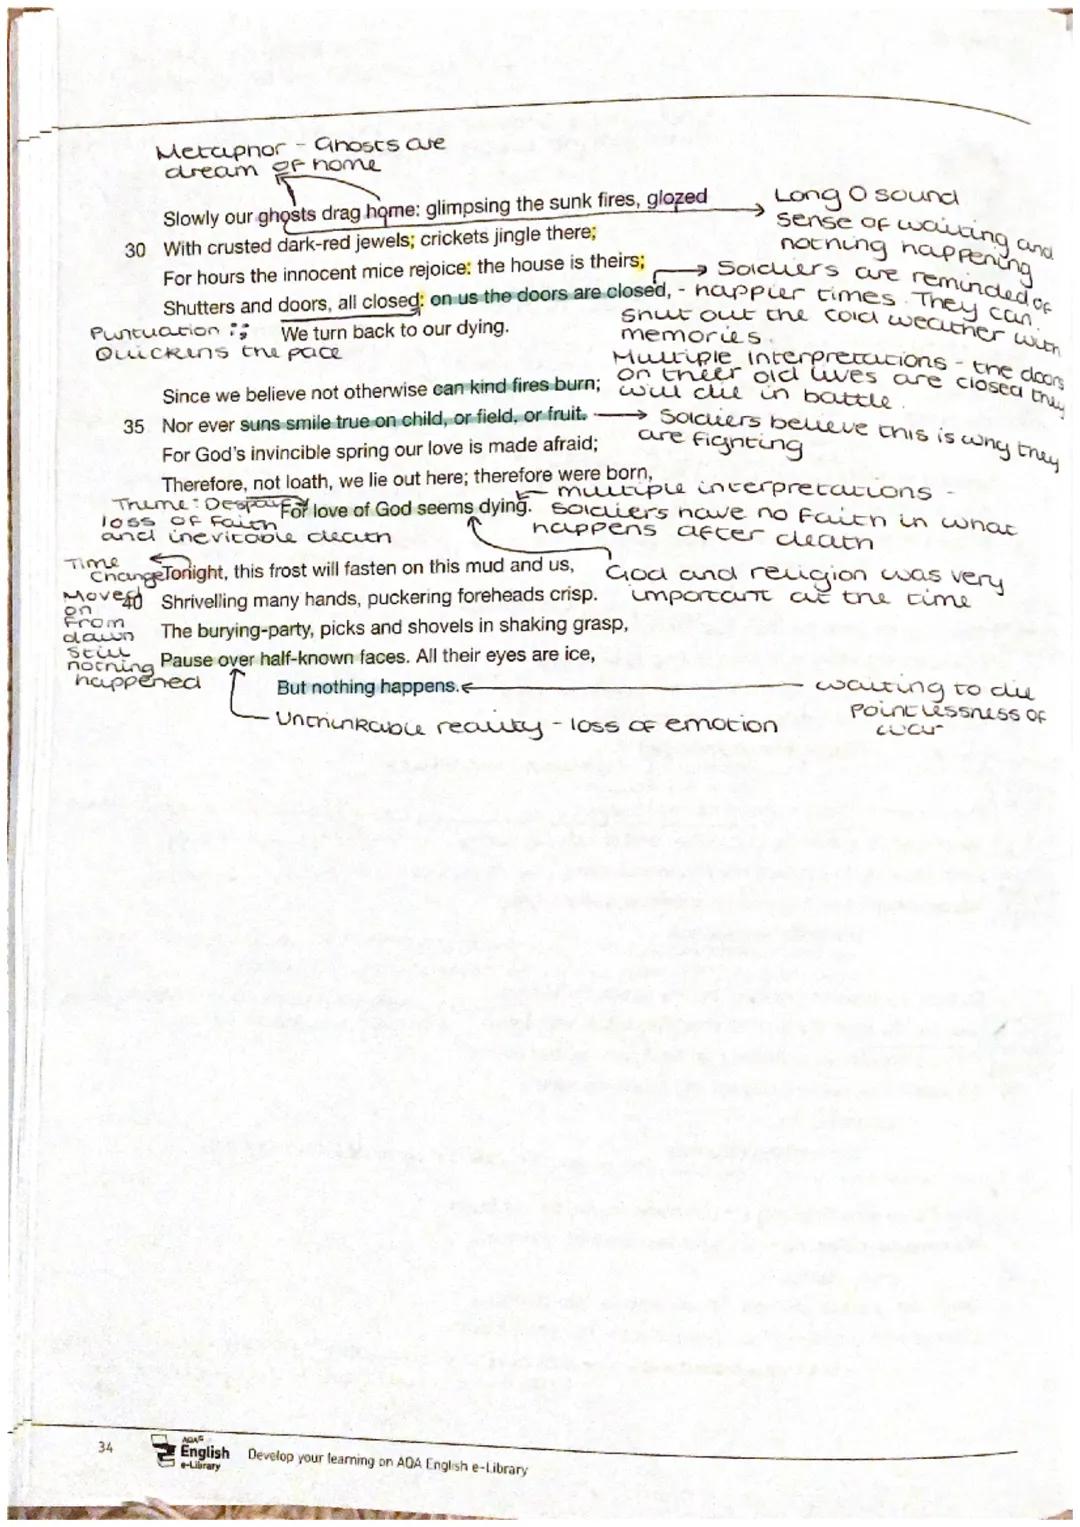 Metaphor - Ghosts are
dream of home
Slowly our ghosts drag home: glimpsing the sunk fires, glozed
Long O sound
sense of waiting and
nothing happening
30 With crusted dark-red jewels; crickets jingle there;
For hours the innocent mice rejoice: the house is theirs;
Shutters and doors, all closed: on us the doors are closed, -
Soldiers are reminded of
happier times. They can
shut out the cold weather with
memories.
Puntuation : ;
Quickens the pace
We turn back to our dying.
Multiple interpretations - the doors
on their old lives are closed they
will die in battle.
Since we believe not otherwise can kind fires burn;
35 Nor ever suns smile true on child, or field, or fruit.
Soldiers believe this is why they
are fighting
For God's invincible spring our love is made afraid;
Therefore, not loath, we lie out here; therefore were born,
Theme: Despair
loss of Faith
and inevitable death
For love of God seems dying.
multiple interpretations -
soldiers have no faith in what
happens after death
God and religion was very
important at the time
Time
change
Moved
on
from
dawn
still
nothing
happened
Tonight, this frost will fasten on this mud and us,
40 Shrivelling many hands, puckering foreheads crisp.
The burying-party, picks and shovels in shaking grasp,
Pause over half-known faces. All their eyes are ice,
But nothing happens.
waiting to die
pointlessness of
war
Unthinkable reality - loss of emotion
34
AQA
English
e-Library
Develop your learning on AQA English e-Library